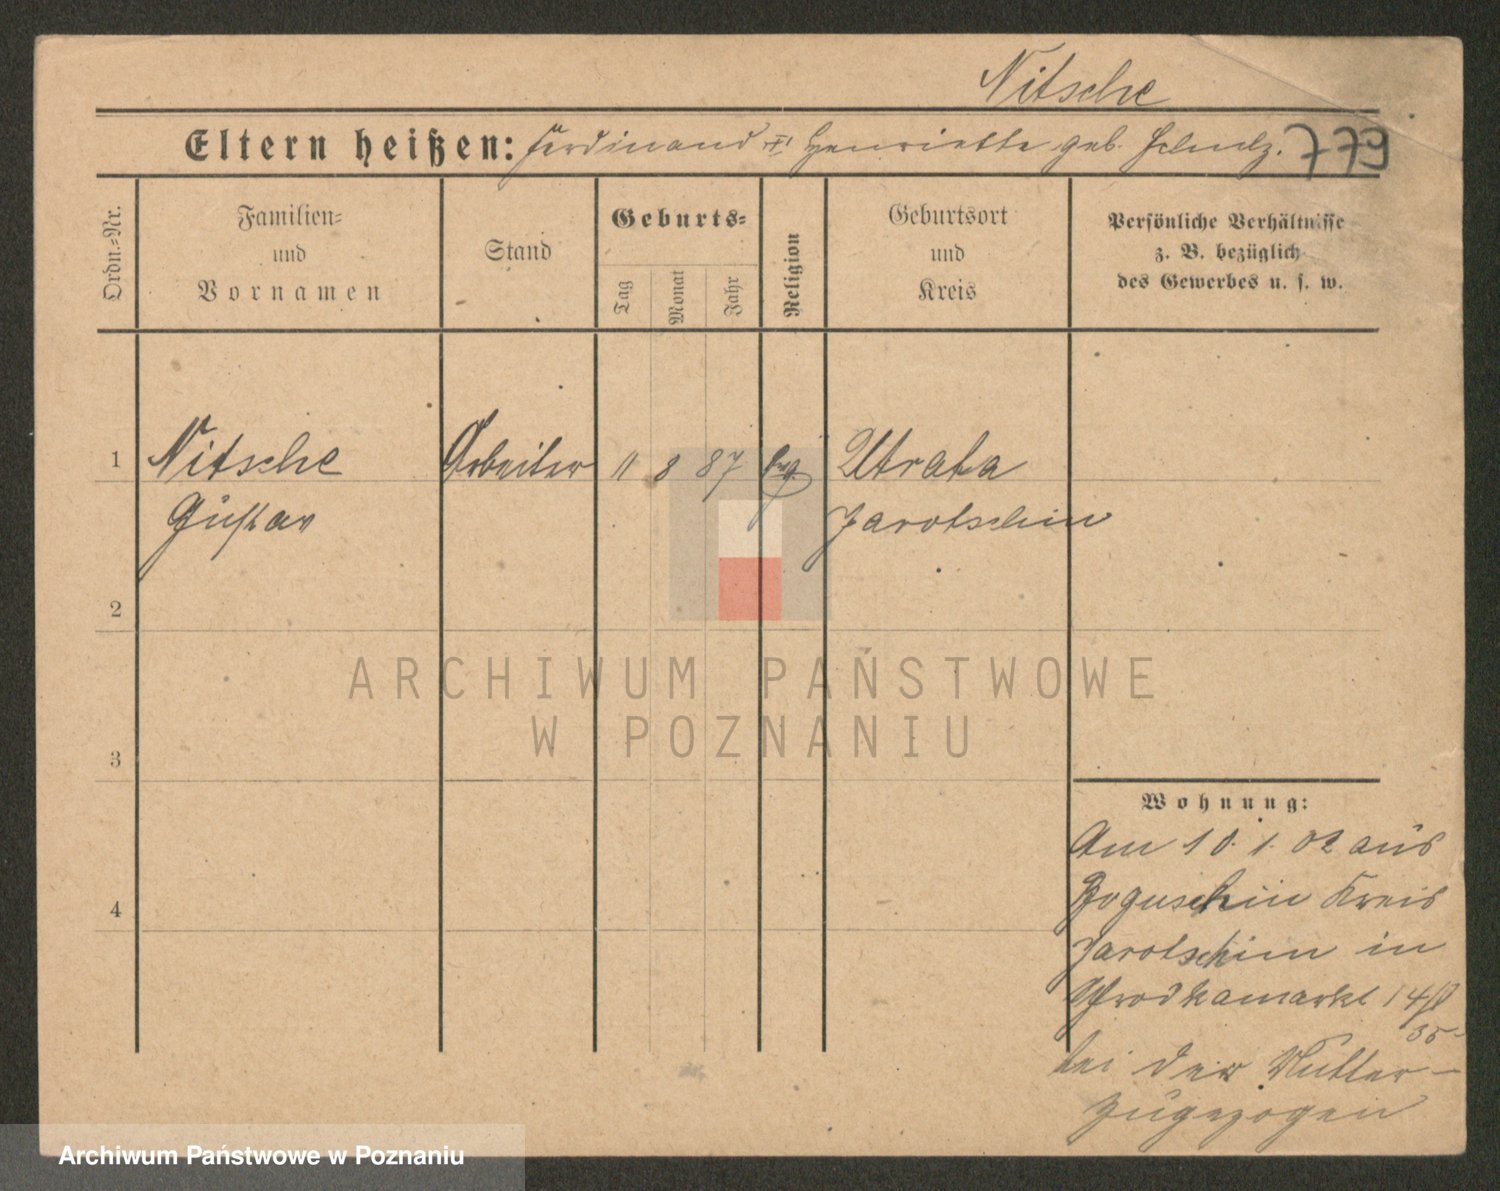 Nitsche
Eltern heißen: Ferdinand u. Henriette geb. Schulz. 779
Ordn.=Nr.
Familien=
und
Vornamen
Stand
Geburts=
Tag
Monat
Jahr
Religion
Geburtsort
und
Kreis
Persönliche Verhältnisse
z. B. bezüglich
des Gewerbes u. s. w.
1 Nitsche Arbeiter 11 8 87 Evg. Utrata
Gustav Jarotschin
2
3
4
Wohnung:
Am 10. 1. 02 aus
Boguschin Kreis
Jarotschin in
Wrodkamarkt 14
35
bei der Mutter
zugezogen
ARCHIWUM PAŃSTWOWE
W POZNANIU
Archiwum Państwowe w Poznaniu